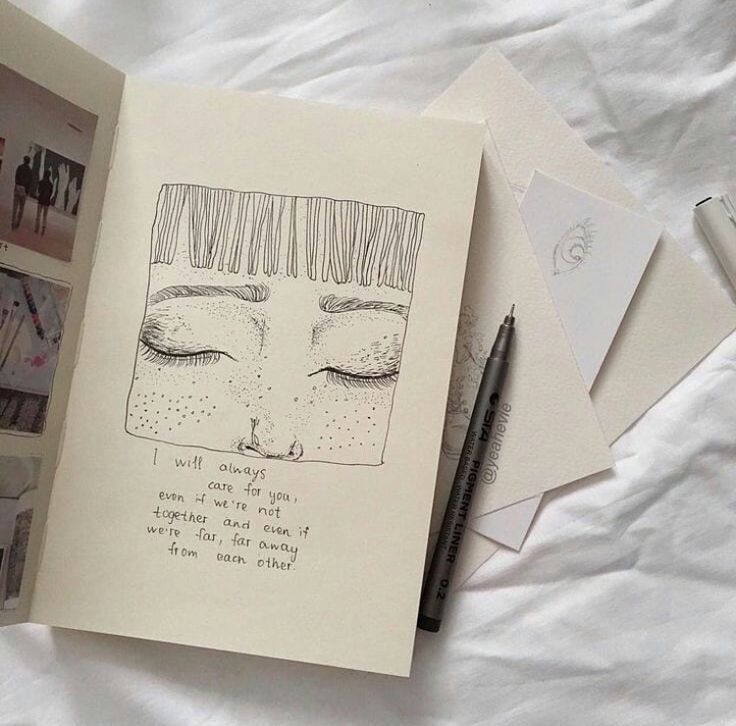 I will always
care for you,
even if we're not
together and even if
we're far, far away
from each other.
STA PIGMENT LINER 0.2
WATER BASED
@yeahevie